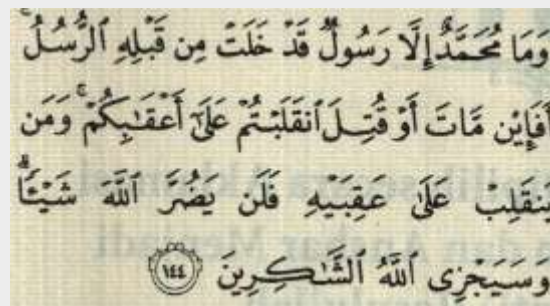 وَمَا مُحَمَّدٌ إِلَّا رَسُولٌ قَدْ خَلَتْ مِن قَبْلِهِ الرُّسُلُ ۚ
أَفَإِي۟ن مَّاتَ أَوْ قُتِلَ ٱنقَلَبْتُمْ عَلَىٰٓ أَعْقَٰبِكُمْ ۚ وَمَن
يَنقَلِبْ عَلَىٰ عَقِبَيْهِ فَلَن يَضُرَّ ٱللَّهَ شَيْـًٔا ۗ
وَسَيَجْزِى ٱللَّهُ ٱلشَّٰكِرِينَ ١٤٤